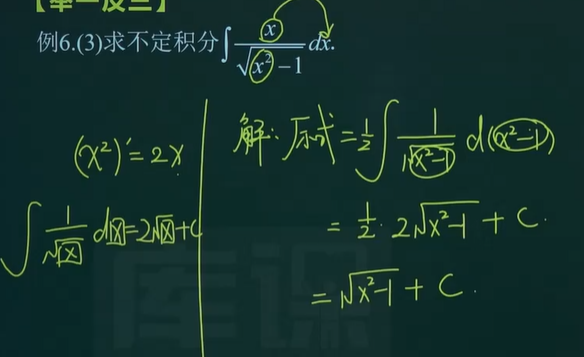 【举一反三】
例6.(3)求不定积分∫ x/√(x²-1) dx.
(x²)'=2x
∫ 1/√x dx=2√x+C
解：原式=1/2∫ 1/√(x²-1) d(x²-1)
= 1/2·2√(x²-1) + C.
=√(x²-1) + C.
库课